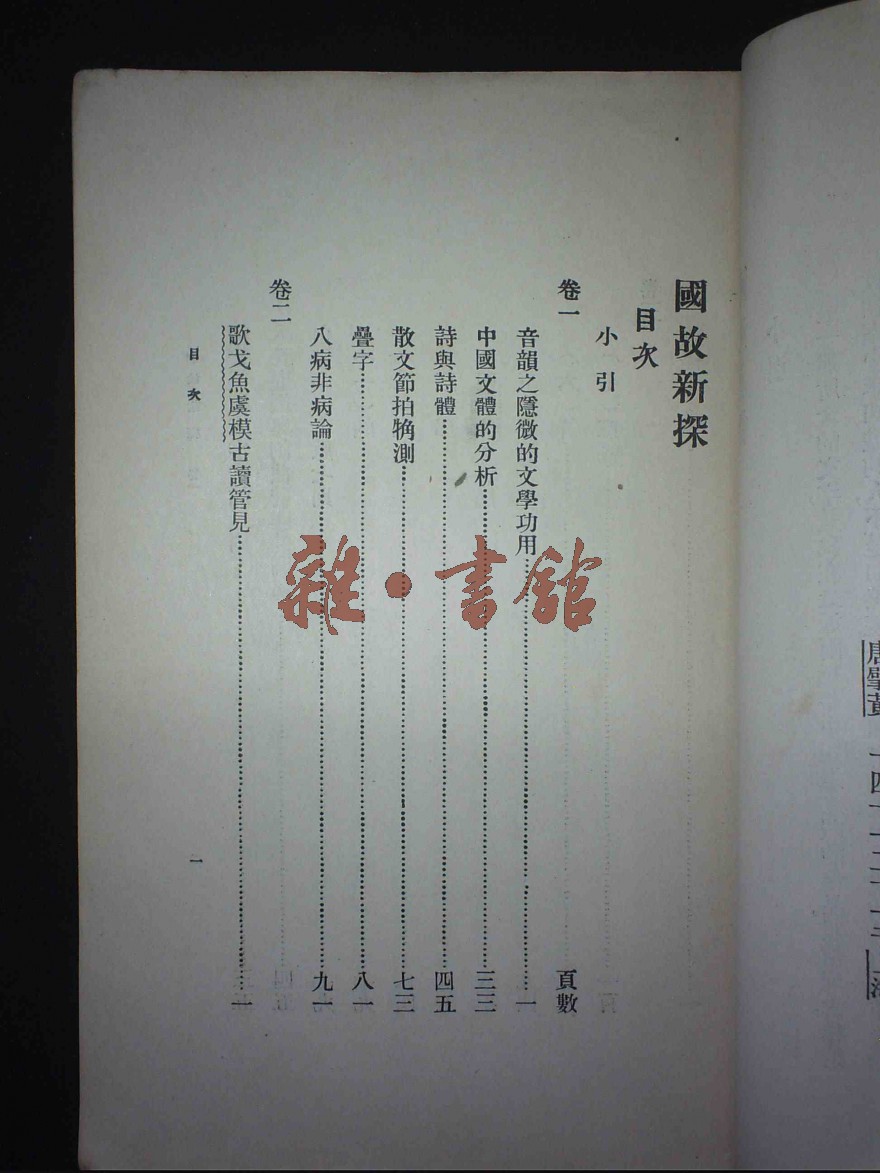 國故新探
目次
小引
卷一 頁數
音韻之隱微的文學功用 一
中國文體的分析 三三
詩與詩體 四五
散文節拍觕測 七三
疊字 八一
八病非病論 九一
卷二
歌戈魚虞模古讀管見 一
目次 一
雜·書館
唐擘黃